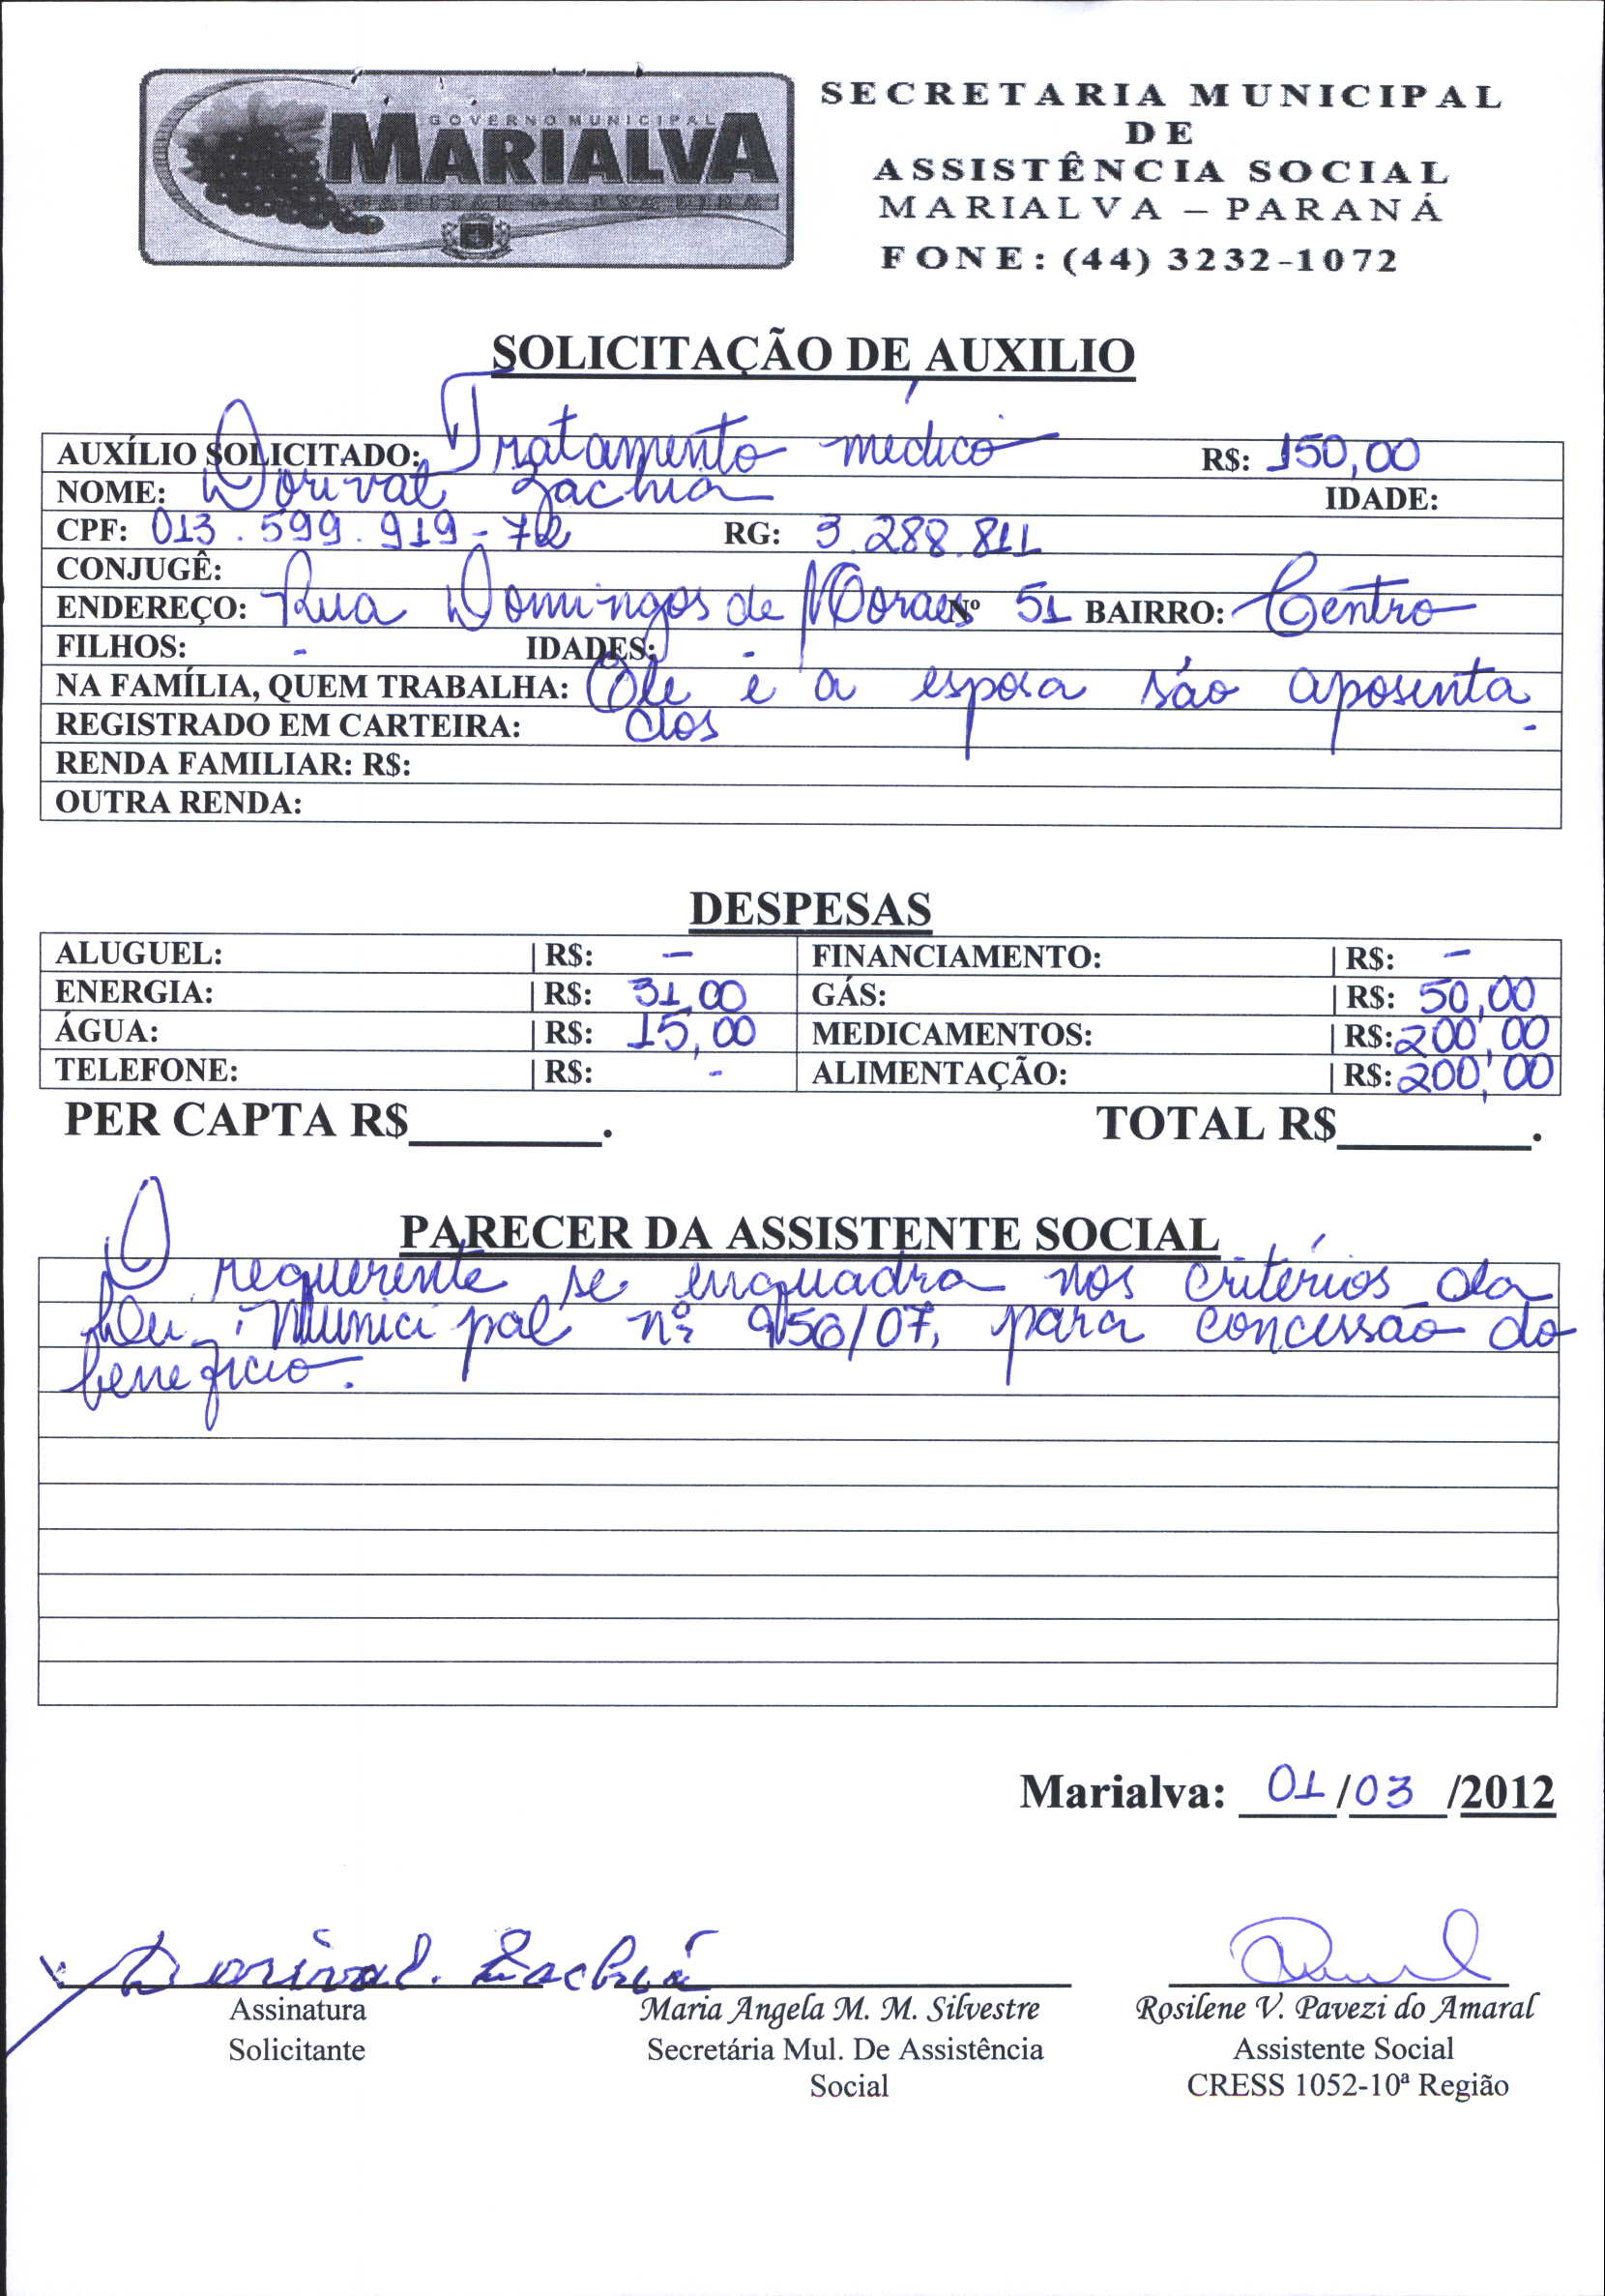 GOVERNO MUNICIPAL
MARIALVA
SECRETARIA MUNICIPAL
DE
ASSISTÊNCIA SOCIAL
MARIALVA – PARANÁ
FONE: (44) 3232-1072
SOLICITAÇÃO DE AUXILIO
AUXÍLIO SOLICITADO: Tratamento médico R$: 150,00
NOME: Dorival Zachia IDADE:
CPF: 013.599.919-72 RG: 3.288.811
CONJUGÊ:
ENDEREÇO: Rua Domingos de Moraes Nº 51 BAIRRO: Centro
FILHOS: - IDADES: -
NA FAMÍLIA, QUEM TRABALHA: Ele e a esposa são aposenta
REGISTRADO EM CARTEIRA: dos -
RENDA FAMILIAR: R$:
OUTRA RENDA:
DESPESAS
ALUGUEL: | R$: - FINANCIAMENTO: | R$: -
ENERGIA: | R$: 31,00 GÁS: | R$: 50,00
ÁGUA: | R$: 15,00 MEDICAMENTOS: | R$: 200,00
TELEFONE: | R$: - ALIMENTAÇÃO: | R$: 200,00
PER CAPTA R$________. TOTAL R$________.
PARECER DA ASSISTENTE SOCIAL
O requerente se enquadra nos critérios da
Lei Municipal nº 956/07, para concessão do
benefício.
Marialva: 01/03/2012
Dorival Zachia
Assinatura Maria Angela M. M. Silvestre Rosilene V. Pavezi do Amaral
Solicitante Secretária Mul. De Assistência Assistente Social
Social CRESS 1052-10ª Região